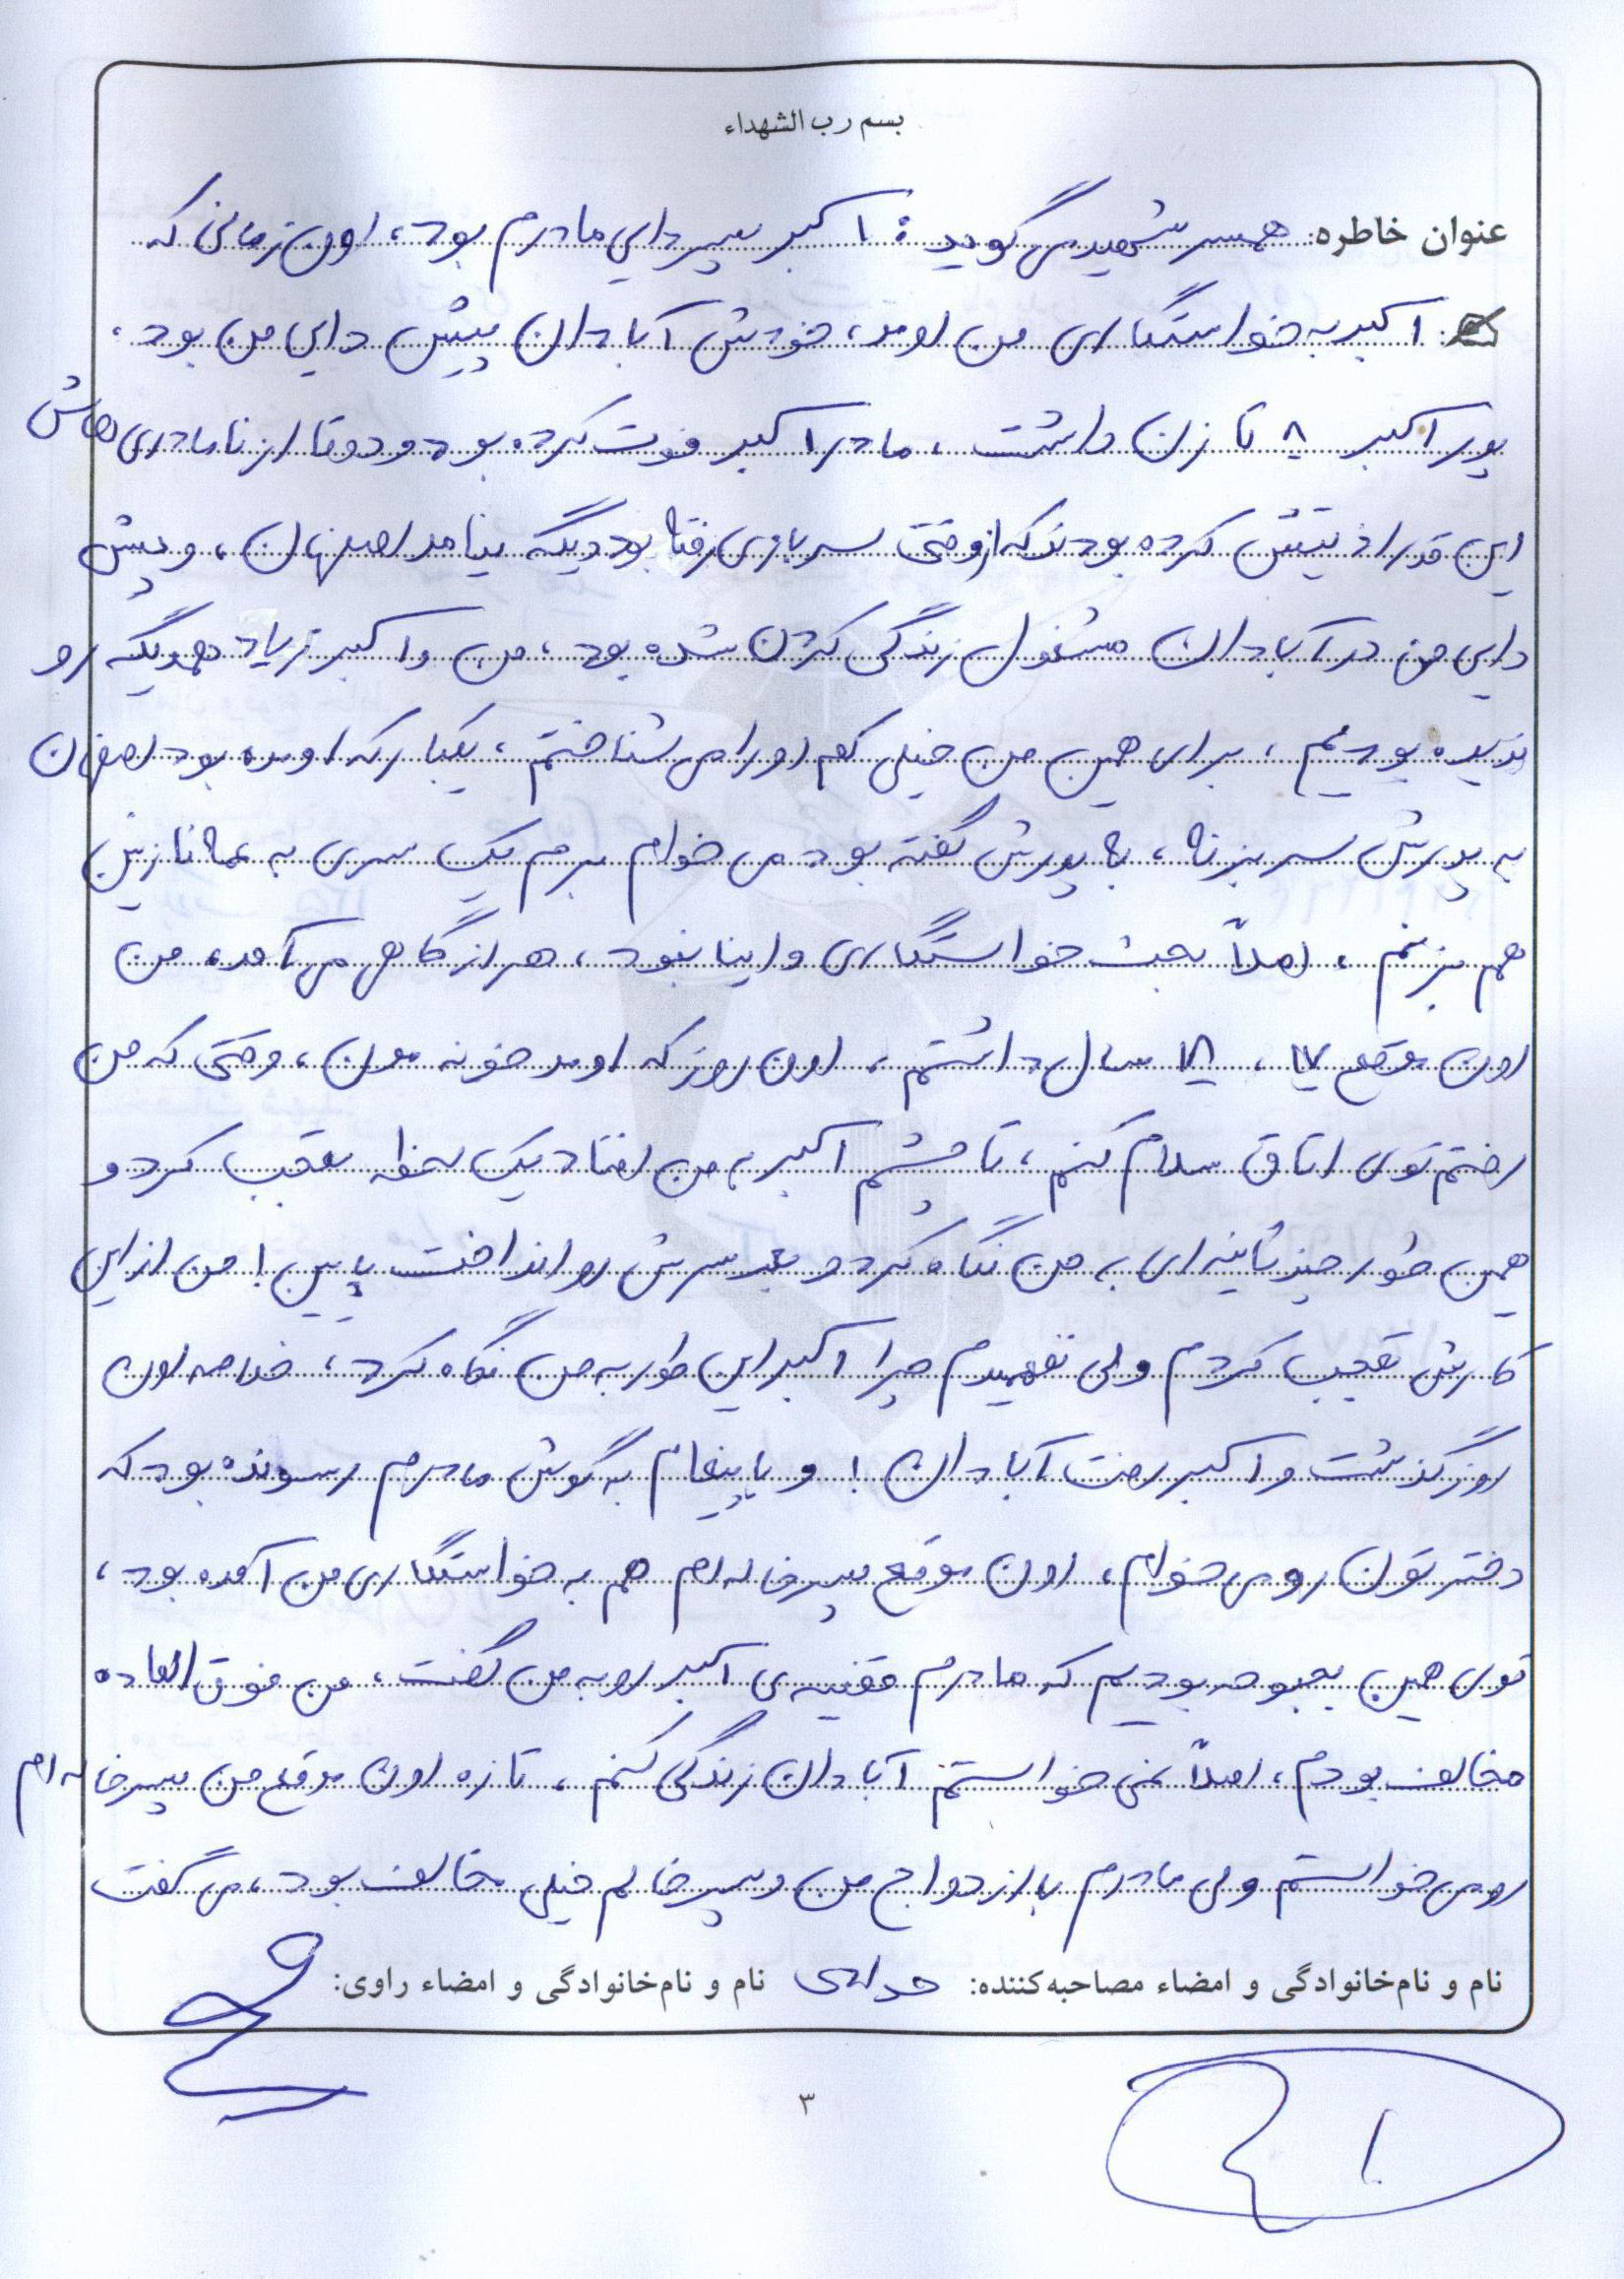 بسم رب الشهداء
عنوان خاطره: همسر شهید می گوید: اکبر پسر دایی مادرم بود، اون زمانی که
اکبر به خواستگاری من اومد، خودش آبادان پیش دایی من بود.
پدر اکبر ۸ تا زن داشت، مادر اکبر فوت کرده بود و دوتا از نامادری هاش
این قدر اذیتش کرده بودند که از وقتی سربازی رفته بود دیگه نیامد اصفهان، و پیش
دایی من در آبادان مشغول زندگی کردن شده بود، من و اکبر زیاد همدیگه رو
ندیده بودیم، برای همین من خیلی کم او را می شناختم، یکبار که اومده بود اصفهان
به پدرش سر بزنه، به پدرش گفته بود می خوام برم یک سری به عمه نازنین
هم بزنم، اصلاً بحث خواستگاری و اینا نبود، هر از گاهی می آمد، من
اون موقع ۱۷، ۱۸ سال داشتم، اون روز که اومد خونه مون، وقتی که من
رفتم توی اتاق سلام کنم، تا چشم اکبر به من افتاد یک لحظه تعجب کرد و
همین طور چند ثانیه ای به من نگاه کرد و بعد سرش رو انداخت پایین! من از این
کارش تعجب کردم ولی نفهمیدم چرا اکبر این طور به من نگاه کرد، خلاصه اون
روز گذشت و اکبر رفت آبادان! و با پیغام به گوش مادرم رسونده بود که
دختر تون رو می خوام، اون موقع پسرخاله ام هم به خواستگاری من آمده بود،
توی همین بحبوحه بودیم که مادرم قضیه ی اکبر رو به من گفت، من فوق العاده
مخالف بودم، اصلاً نمی خواستم آبادان زندگی کنم، تازه اون موقع من پسرخاله ام
رو می خواستم ولی مادرم با ازدواج من و پسرخالم خیلی مخالف بود، می گفت
نام و نام خانوادگی و امضاء مصاحبه کننده: نام و نام خانوادگی و امضاء راوی:
۳